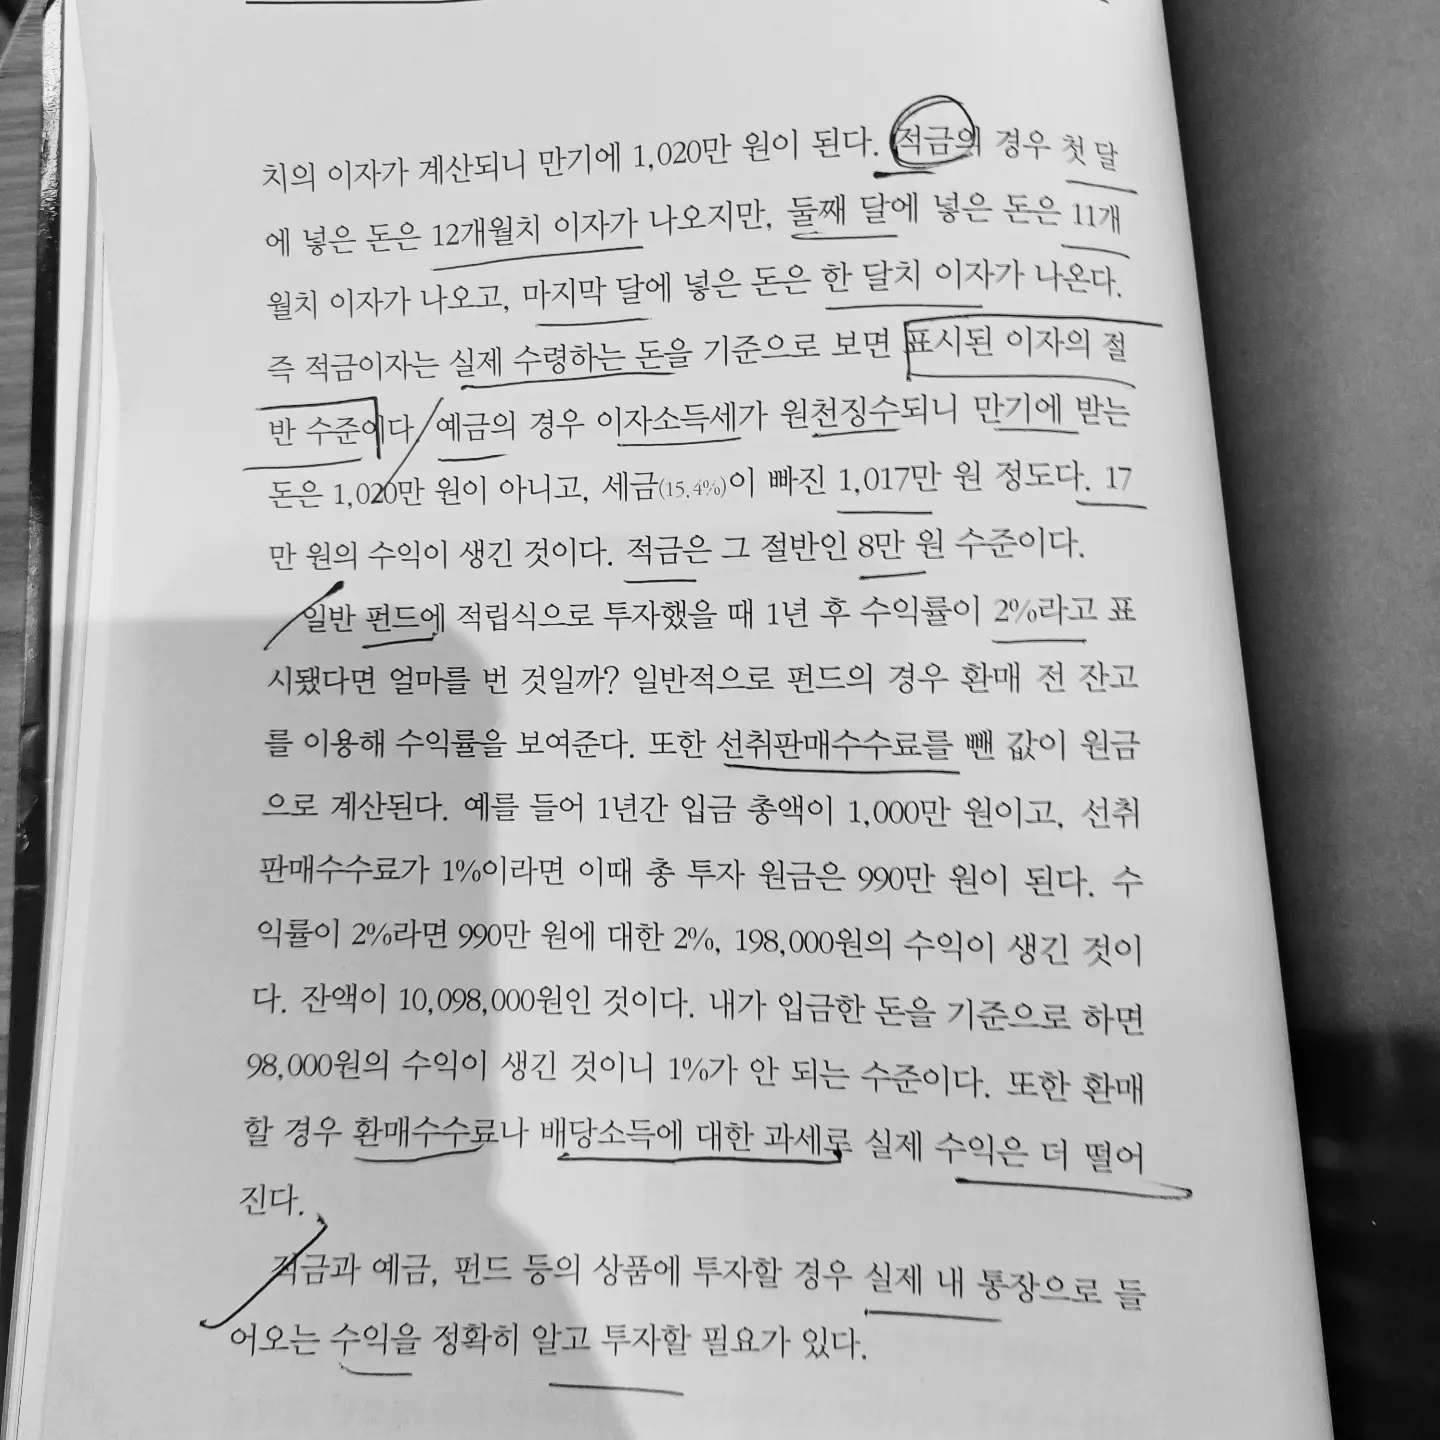 치의 이자가 계산되니 만기에 1,020만 원이 된다. 적금의 경우 첫 달
에 넣은 돈은 12개월치 이자가 나오지만, 둘째 달에 넣은 돈은 11개
월치 이자가 나오고, 마지막 달에 넣은 돈은 한 달치 이자가 나온다.
즉 적금이자는 실제 수령하는 돈을 기준으로 보면 표시된 이자의 절
반 수준이다. 예금의 경우 이자소득세가 원천징수되니 만기에 받는
돈은 1,020만 원이 아니고, 세금(15.4%)이 빠진 1,017만 원 정도다. 17
만 원의 수익이 생긴 것이다. 적금은 그 절반인 8만 원 수준이다.
일반 펀드에 적립식으로 투자했을 때 1년 후 수익률이 2%라고 표
시됐다면 얼마를 번 것일까? 일반적으로 펀드의 경우 환매 전 잔고
를 이용해 수익률을 보여준다. 또한 선취판매수수료를 뺀 값이 원금
으로 계산된다. 예를 들어 1년간 입금 총액이 1,000만 원이고, 선취
판매수수료가 1%이라면 이때 총 투자 원금은 990만 원이 된다. 수
익률이 2%라면 990만 원에 대한 2%, 198,000원의 수익이 생긴 것이
다. 잔액이 10,098,000원인 것이다. 내가 입금한 돈을 기준으로 하면
98,000원의 수익이 생긴 것이니 1%가 안 되는 수준이다. 또한 환매
할 경우 환매수수료나 배당소득에 대한 과세로 실제 수익은 더 떨어
진다.
적금과 예금, 펀드 등의 상품에 투자할 경우 실제 내 통장으로 들
어오는 수익을 정확히 알고 투자할 필요가 있다.